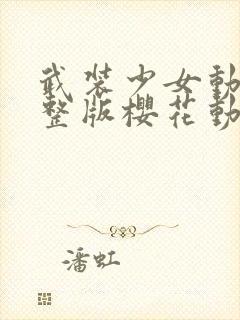 武装少女動
整版櫻花動
潘虹